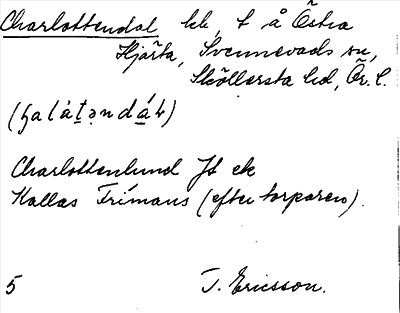 Charlottendal lh, t å Östra
Hjärta, Svennevads sn,
Sköllersta hd, Ör. l.
Charlottenlund Jf ek
Kallas Frimans (efter torparen).
5 T. Ericsson.